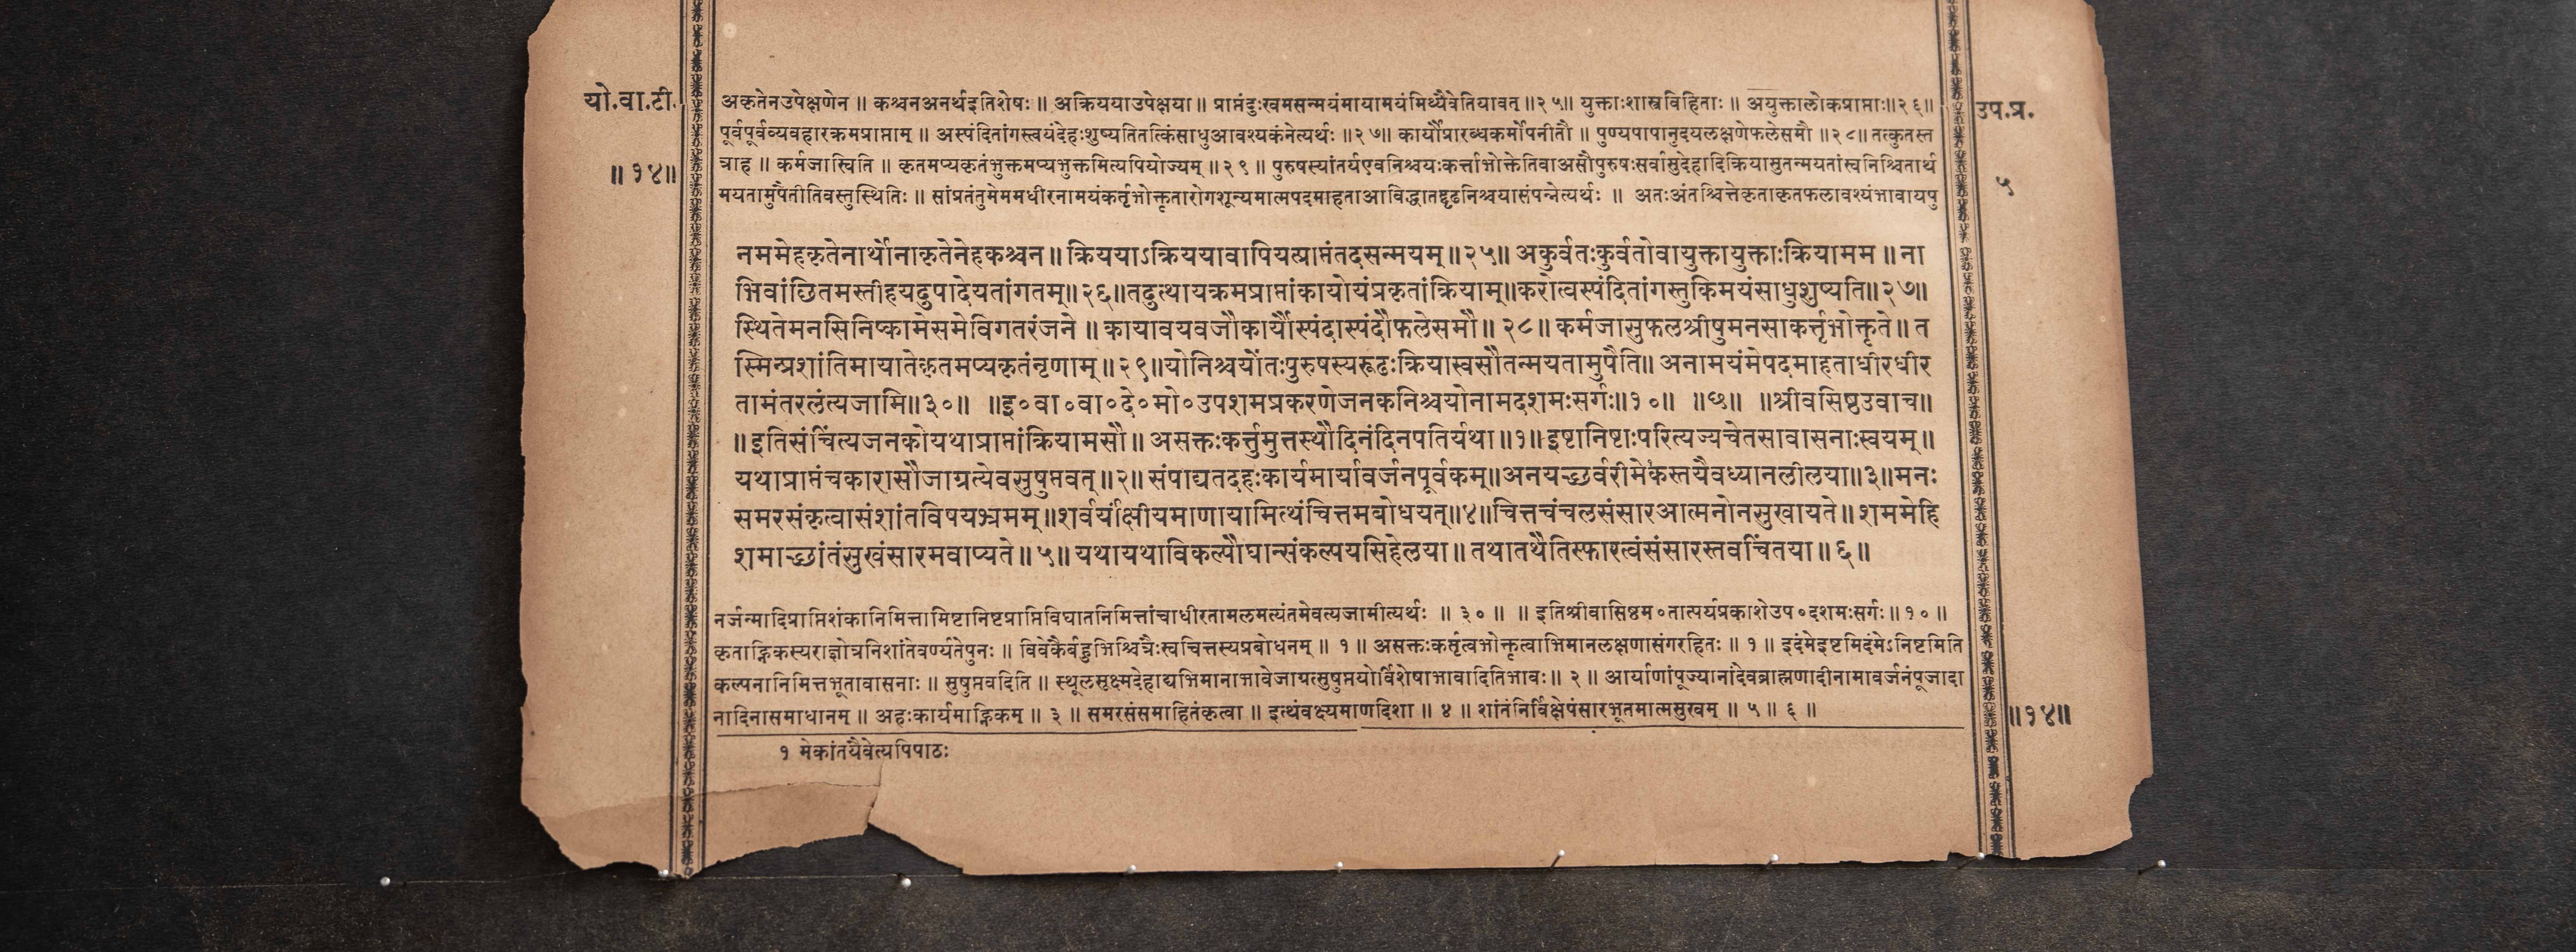 यो.वा.टी.
॥१४॥
अकृतेनउपेक्षणेन ॥ कश्चनअनर्थइतिशेषः ॥ अक्रिययाउपेक्षया ॥ प्राप्तंदुःखमसन्मयंमायामयंमिथ्यैवेतियावत् ॥२५॥ युक्ताःशास्त्रविहिताः ॥ अयुक्तालोकप्राप्ताः॥२६॥
पूर्वपूर्वव्यवहारक्रमप्राप्ताम् ॥ अस्पंदितांगस्त्वयंदेहःशुष्यतितत्किंसाधुआवश्यकंनेत्यर्थः ॥२७॥ कार्यौप्रारब्धकर्मोपनीतौ ॥ पुण्यपापानुदयलक्षणेफलेसमौ ॥२८॥ तत्कुतस्त
त्राह ॥ कर्मजास्विति ॥ कृतमप्यकृतंभुक्तमप्यभुक्तमित्यपियोज्यम् ॥२९॥ पुरुषस्यांतर्यएवनिश्चयःकर्त्ताभोक्तेतिवाअसौपुरुषःसर्वासुदेहादिक्रियासुतन्मयतांस्वनिश्चितार्थ
मयतामुपैतीतिवस्तुस्थितिः ॥ सांप्रतंतुमेममधीरनामयंकर्तृभोक्तृतारोगशून्यमात्मपदमाहताआविद्धातद्दृढनिश्चयासंपन्नेत्यर्थः ॥ अतःअंतश्चित्तेकृताकृतफलावश्यंभावायपु
नममेहकृतेनार्थोनाकृतेनेहकश्चन॥क्रिययाऽक्रिययावापियत्प्राप्तंतदसन्मयम्॥२५॥अकुर्वतःकुर्वतोवायुक्तायुक्ताःक्रियामम॥ना
भिवांछितमस्तीहयदुपादेयतांगतम्॥२६॥तदुत्थायक्रमप्राप्तांकायोयंप्रकृतांक्रियाम्॥करोत्वस्पंदितांगस्तुकिमयंसाधुशुष्यति॥२७॥
स्थितेमनसिनिष्कामेसमेविगतरंजने॥कायावयवजौकार्यौस्पंदास्पंदौफलेसमौ॥२८॥कर्मजासुफलश्रीषुमनसाकर्त्तृभोक्तृते॥त
स्मिन्प्रशांतिमायातेकृतमप्यकृतंनृणाम्॥२९॥योनिश्चयोंतःपुरुषस्यरूढःक्रियास्वसौतन्मयतामुपैति॥अनामयंमेपदमाहताधीरधीर
तामंतरलंत्यजामि॥३०॥ ॥इ॰वा॰वा॰दे॰मो॰उपशमप्रकरणेजनकनिश्चयोनामदशमःसर्गः॥१०॥ ॥७॥ ॥श्रीवसिष्ठउवाच॥
॥इतिसंचिंत्यजनकोयथाप्राप्तांक्रियामसौ॥असक्तःकर्त्तुमुत्तस्थौदिनंदिनपतिर्यथा॥१॥इष्टानिष्टाःपरित्यज्यचेतसावासनाःस्वयम्॥
यथाप्राप्तंचकारासौजाग्रत्येवसुषुप्तवत्॥२॥संपाद्यतदहःकार्यमार्यावर्जनपूर्वकम्॥अनयच्छर्वरीमेकस्तयैवध्यानलीलया॥३॥मनः
समरसंकृत्वासंशांतविषयभ्रमम्॥शर्वर्यांक्षीयमाणायामित्थंचित्तमबोधयत्॥४॥चित्तचंचलसंसारआत्मनोनसुखायते॥शममेहि
शमाच्छांतंसुखंसारमवाप्यते॥५॥यथायथाविकल्पौघान्संकल्पयसिहेलया॥तथातथैतिस्फारत्वंसंसारस्तवचिंतया॥६॥
नर्जन्मादिप्राप्तिशंकानिमित्तामिष्टानिष्टप्राप्तिविघातनिमित्तांचाधीरतामलमत्यंतमेवत्यजामीत्यर्थः ॥ ३० ॥ ॥ इतिश्रीवासिष्ठम॰तात्पर्यप्रकाशेउप॰दशमःसर्गः॥१०॥
कृताह्निकस्यराज्ञोत्रनिशांतेवर्ण्यतेपुनः ॥ विवेकैर्बहुभिश्चित्रैःस्वचित्तस्यप्रबोधनम् ॥ १ ॥ असक्तःकर्तृत्वभोक्तृत्वाभिमानलक्षणासंगरहितः ॥ १ ॥ इदंमेइष्टमिदंमेऽनिष्टमिति
कल्पनानिमित्तभूतावासनाः ॥ सुषुप्तवदिति ॥ स्थूलसूक्ष्मदेहाद्यभिमानाभावेजाग्रत्सुषुप्तयोर्विशेषाभावादितिभावः॥ २ ॥ आर्याणांपूज्यानांदेवब्राह्मणादीनामावर्जनंपूजादा
नादिनासमाधानम् ॥ अहःकार्यमाह्निकम् ॥ ३ ॥ समरसंसमाहितंकृत्वा ॥ इत्थंवक्ष्यमाणदिशा ॥ ४ ॥ शांतंनिर्विक्षेपंसारभूतमात्मसुखम् ॥ ५ ॥ ६ ॥
१ मेकांतयैवेत्यपिपाठः
उप.प्र.
५
॥१४॥